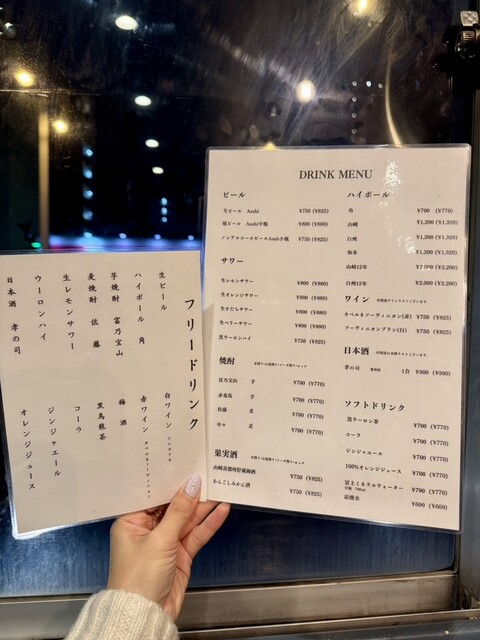 フリードリンク
生ビール
ハイボール 角
芋焼酎 富乃宝山
麦焼酎 佐藤
生レモンサワー
ウーロンハイ
日本酒 孝の司
白ワイン
赤ワイン
カベルネソーヴィニヨン
梅酒
黒烏龍茶
コーラ
ジンジャエール
オレンジジュース
DRINK MENU
ビール
生ビール Asahi ¥750 (¥825)
瓶ビール Asahi中瓶 ¥800 (¥880)
ノンアルコールビールAsahi小瓶 ¥750 (¥825)
サワー
生レモンサワー ¥800 (¥880)
生オレンジサワー ¥800 (¥880)
生すだちサワー ¥800 (¥880)
生ベリーサワー ¥800 (¥880)
黒ウーロンハイ ¥750 (¥825)
焼酎
富乃宝山 芋 ¥700 (¥770)
赤兎馬 芋 ¥700 (¥770)
佐藤 麦 ¥700 (¥770)
中々 麦 ¥700 (¥770)
果実酒
山崎蒸溜所貯蔵梅酒 ¥750 (¥825)
あらごしみかん酒 ¥750 (¥825)
ハイボール
角 ¥700 (¥770)
山崎 ¥1,200 (¥1,320)
白州 ¥1,200 (¥1,320)
知多 ¥1,200 (¥1,320)
山崎12年 ¥2,000 (¥2,200)
白州12年 ¥2,000 (¥2,200)
ワイン
カベルネソーヴィニヨン(赤) ¥750 (¥825)
ソーヴィニヨンブラン(白) ¥750 (¥825)
日本酒
孝の司 1合 ¥900 (¥990)
ソフトドリンク
黒ウーロン茶 ¥700 (¥770)
コーラ ¥700 (¥770)
ジンジャエール ¥700 (¥770)
100%オレンジジュース ¥700 (¥770)
富士ミネラルウォーター ¥700 (¥770)
炭酸水 ¥600 (¥660)